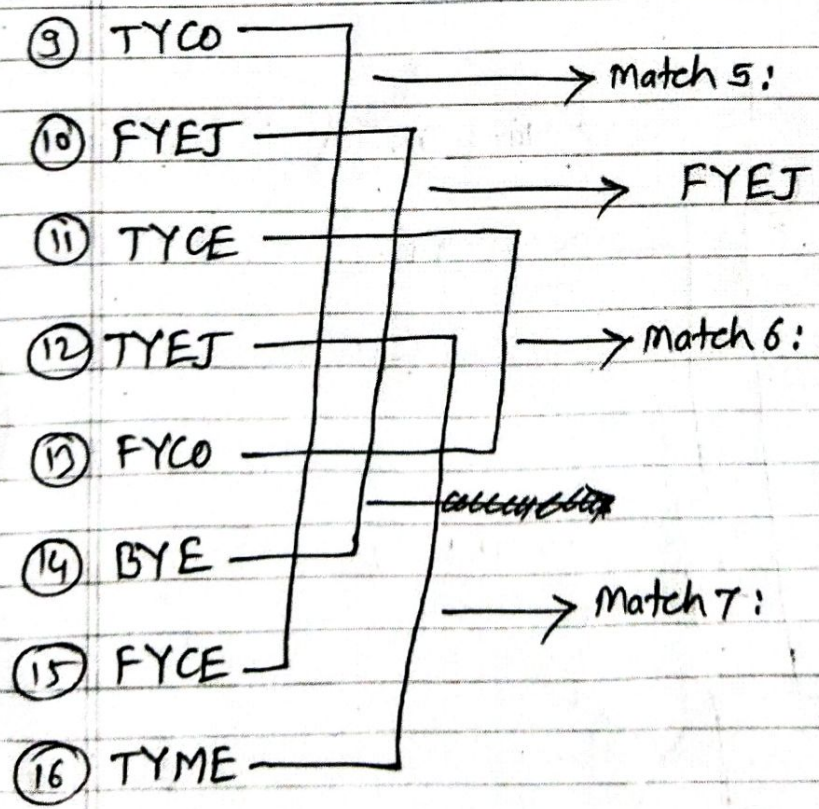 9 TYCO
Match 5:
10 FYEJ
FYEJ
11 TYCE
12 TYEJ
Match 6:
13 FYCO
14 BYE
Match 7:
15 FYCE
16 TYME